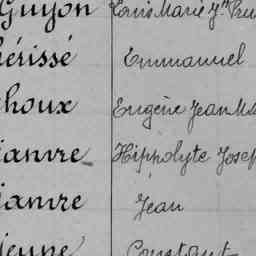 Guyon Louis Marie Jn
érissé Emmanuel
houx Eugène Jean M
ianvre Hippolyte Josep
ianvre Jean
jeune Constant